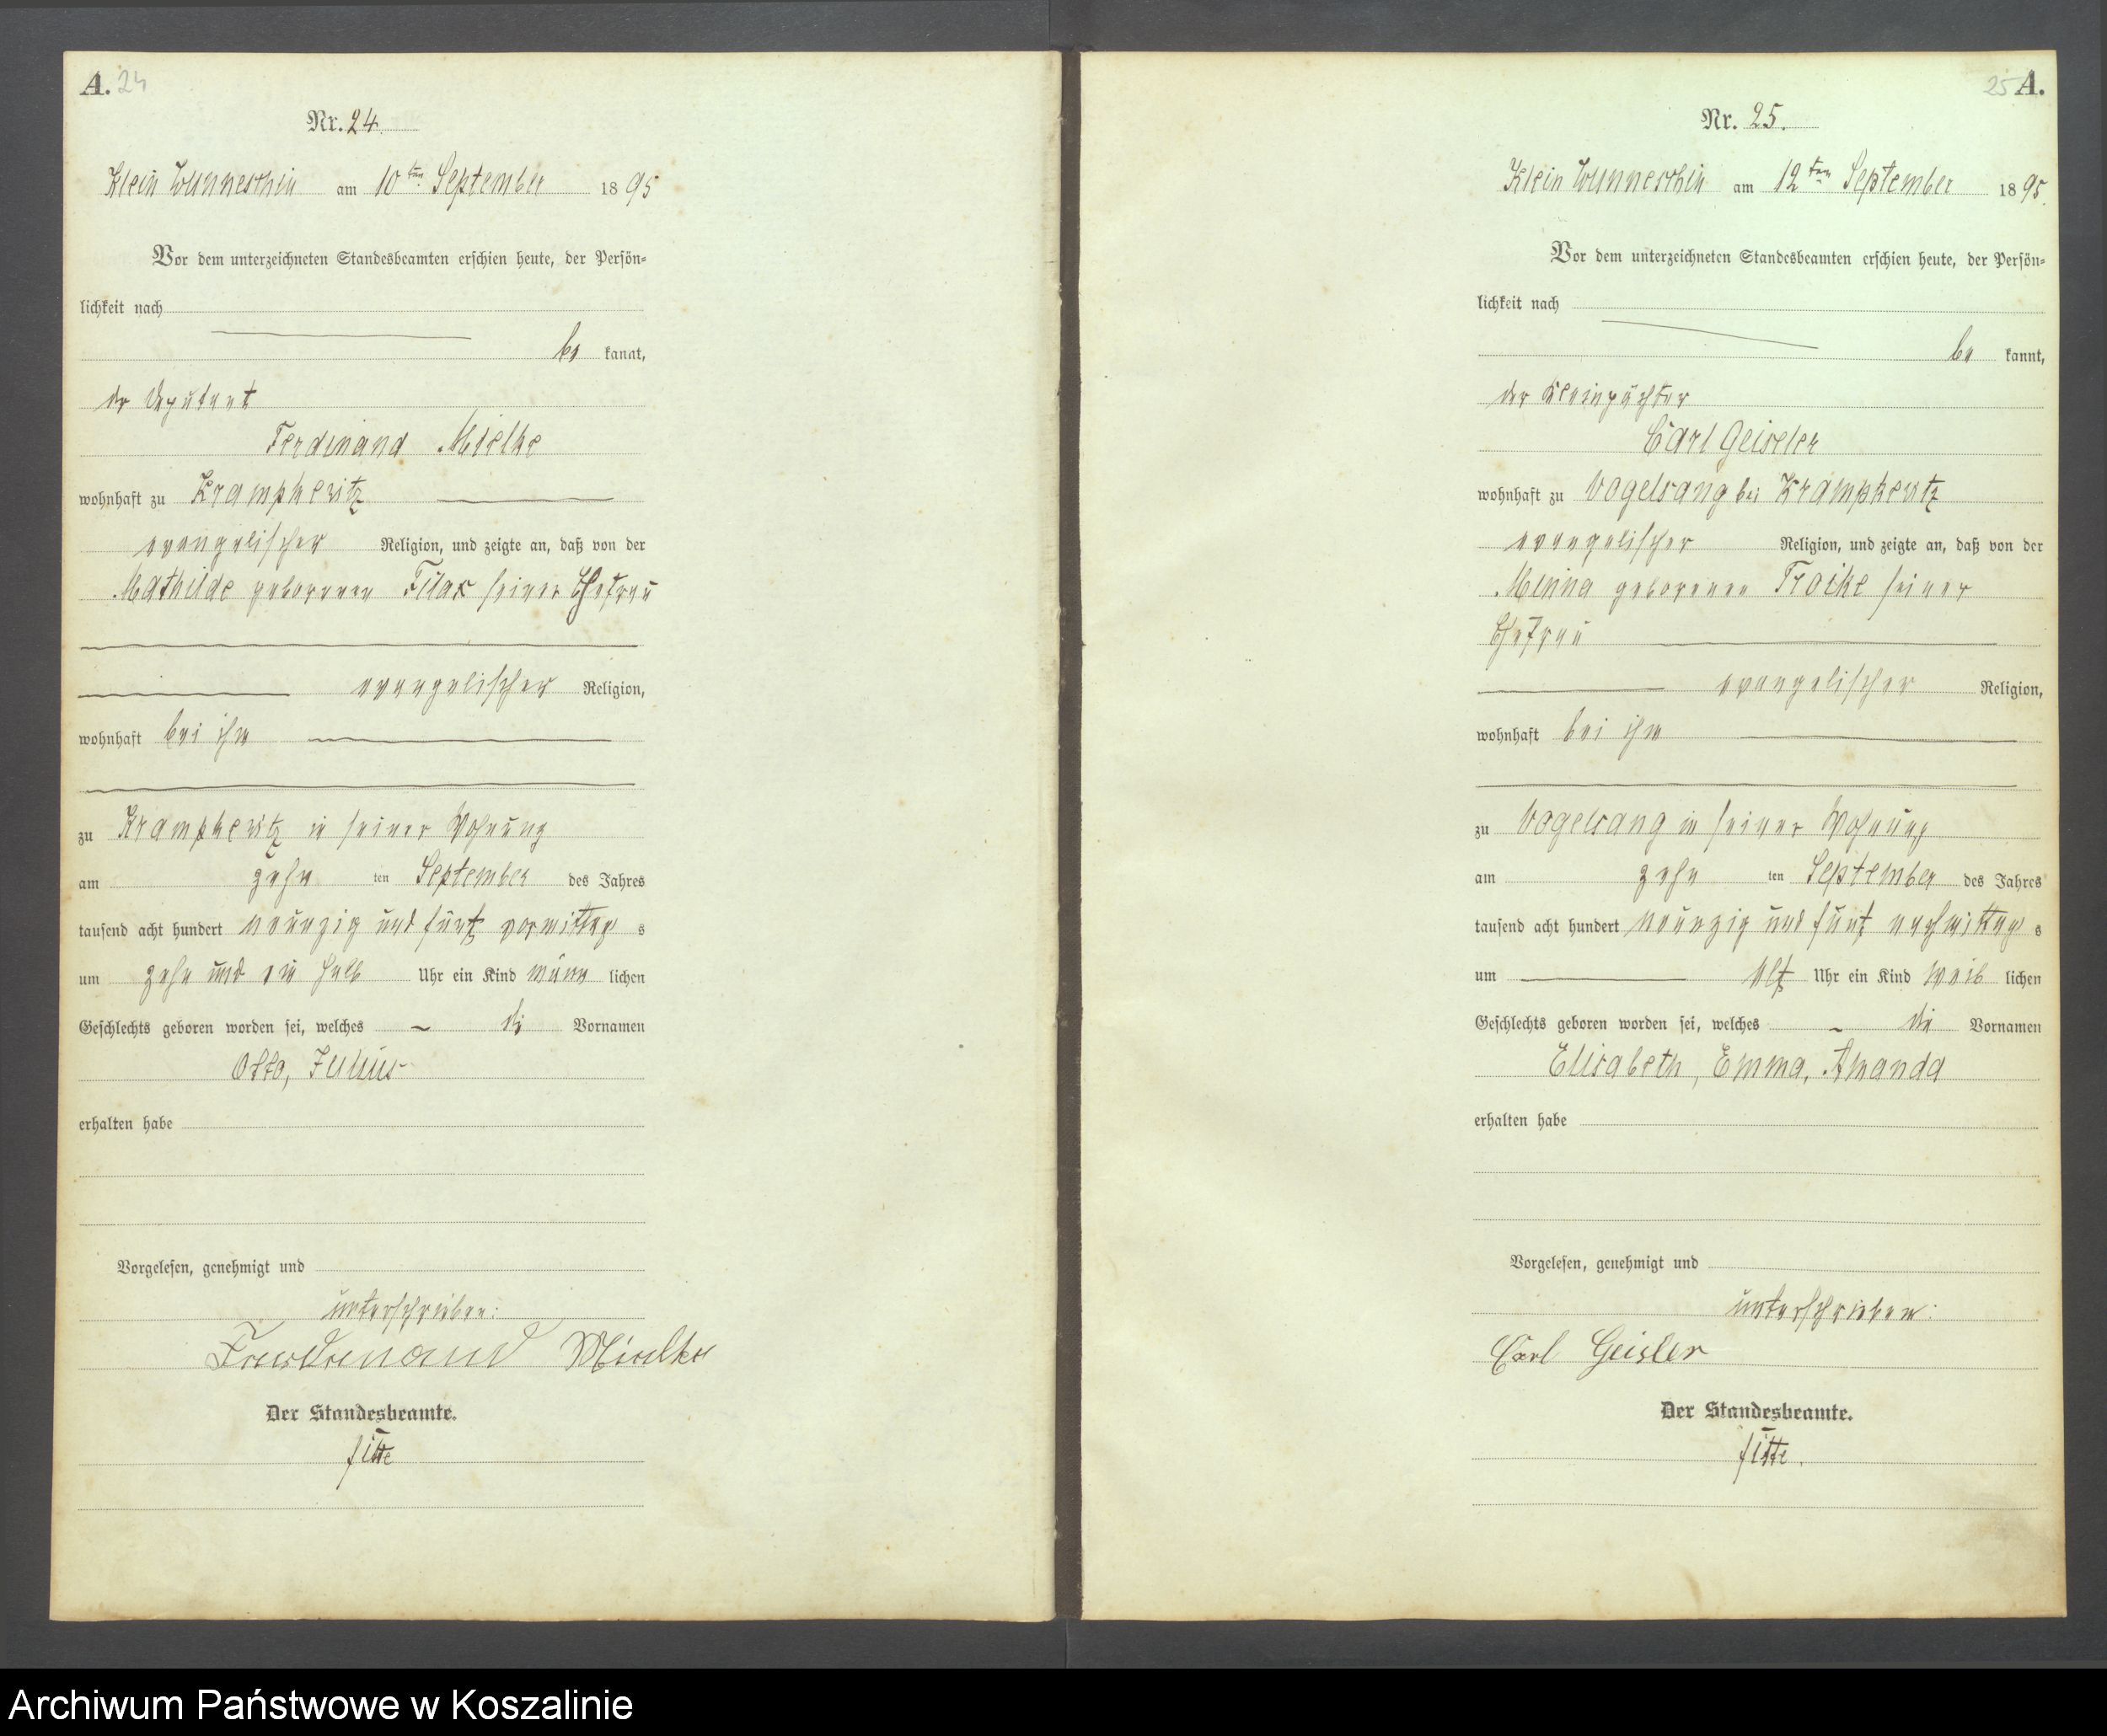 A. 24
Nr. 24.
Klein Wunneschin am 10ten September 1895
Vor dem unterzeichneten Standesbeamten erschien heute, der Persön-
lichkeit nach
be kannt,
der Deputant
Ferdinand Mielke
wohnhaft zu Krampkewitz
evangelischer Religion, und zeigte an, daß von der
Mathilde geborenen seiner Ehefrau
evangelischer Religion,
wohnhaft bei ihm
zu Krampkewitz in seiner Wohnung
am zehn ten September des Jahres
tausend acht hundert neunzig und fünf vormittag s
um zehn und ein halb Uhr ein Kind männ lichen
Geschlechts geboren worden sei, welches die Vornamen
Otto, Julius
erhalten habe
Vorgelesen, genehmigt und
unterschrieben:
Mielke
Der Standesbeamte.
25 A.
Nr. 25.
Klein Wunneschin am 12ten September 1895.
Vor dem unterzeichneten Standesbeamten erschien heute, der Persön-
lichkeit nach
be kannt,
der Kleinpächter
Carl Geiseler
wohnhaft zu Vogelsang bei Krampkewitz
evangelischer Religion, und zeigte an, daß von der
Minna geborenen Troike seiner
Ehefrau
evangelischer Religion,
wohnhaft bei ihm
zu Vogelsang in seiner Wohnung
am zehn ten September des Jahres
tausend acht hundert neunzig und fünf nachmittag s
um elf Uhr ein Kind weib lichen
Geschlechts geboren worden sei, welches die Vornamen
Elisabeth, Emma, Amanda
erhalten habe
Vorgelesen, genehmigt und
unterschrieben:
Carl Geisler
Der Standesbeamte.
Archiwum Państwowe w Koszalinie